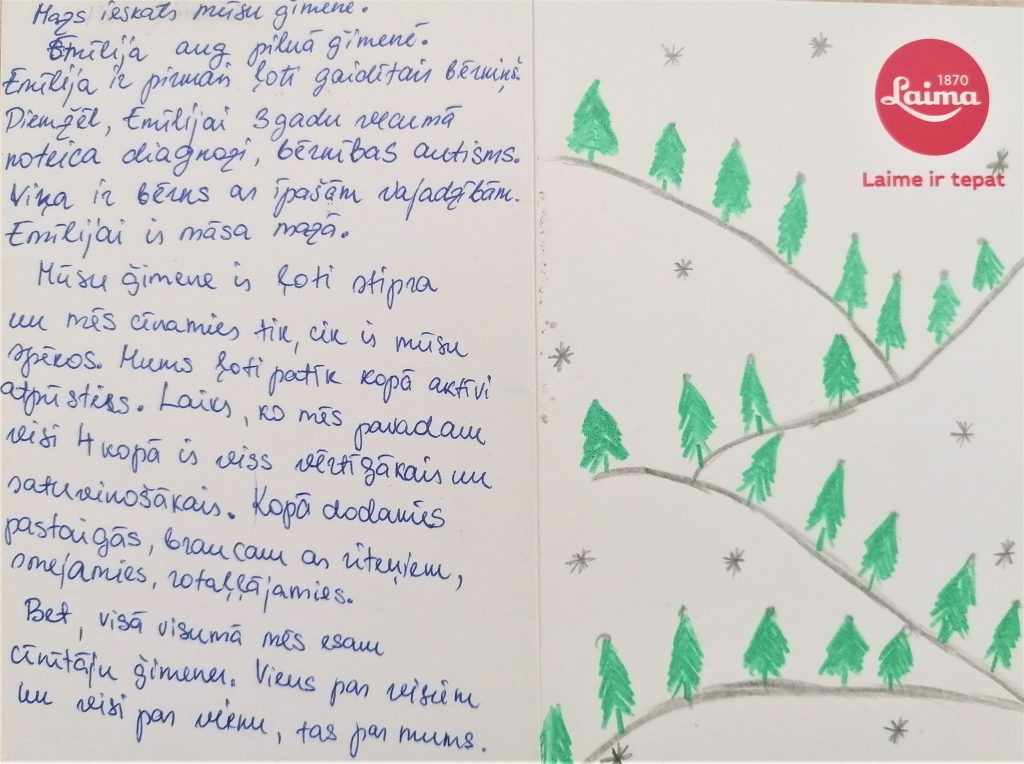 Mazs ieskats mūsu ģimenē.
Emīlija aug pilnā ģimenē.
Emīlija ir pirmais ļoti gaidītais bērniņš.
Diemžēl, Emīlijai 3 gadu vecumā
noteica diagnozi, bērnības autisms.
Viņa ir bērns ar īpašām vajadzībām.
Emīlijai ir māsa mazā.
Mūsu ģimene ir ļoti stipra
un mēs cīnamies tik, cik ir mūsu
spēkos. Mums ļoti patīk kopā aktīvi
atpūsties. Laiks, ko mēs pavadam
visi 4 kopā ir viss vērtīgākais un
satuvinošākais. Kopā dodamies
pastaigās, braucam ar riteņiem,
smejamies, rotaļļājamies.
Bet, visā visumā mēs esam
cīnītāju ģimene. Viens par visiem
un visi par vienu, tas par mums.
1870
Laima
Laime ir tepat